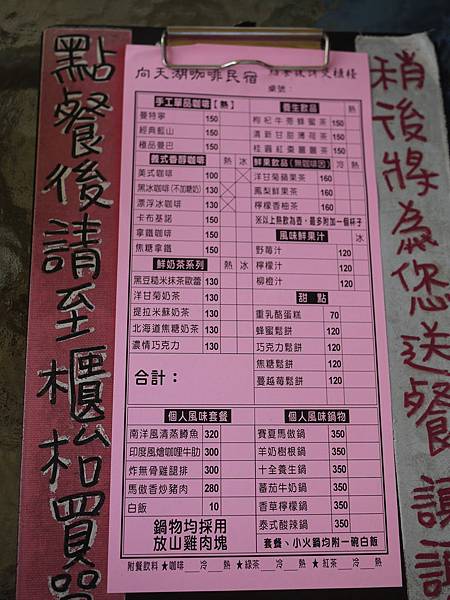 點餐後請至櫃枱買單
稍後將為您送餐 謝謝
向天湖咖啡民宿 點餐後請交櫃檯
桌號：
手工單品咖啡【熱】
曼特寧 150
經典藍山 150
極品曼巴 150
義式香醇咖啡 熱 冰
美式咖啡 100
黑冰咖啡(不加糖奶) 130
漂浮冰咖啡 130
卡布基諾 150
拿鐵咖啡 150
焦糖拿鐵 150
鮮奶茶系列 熱 冰
黑豆糙米抹茶歐蕾 130
洋甘菊奶茶 130
提拉米蘇奶茶 130
北海道焦糖奶茶 130
濃情巧克力 130
合計：
養生飲品 熱
枸杞牛蒡蜂蜜茶 150
清新甘甜薄荷茶 150
桂圓紅棗薑薑茶 150
鮮果飲品(無咖啡因) 冷 熱
洋甘菊蘋果茶 160
鳳梨鮮果茶 160
檸檬香柚茶 160
※以上熱飲為壺，最多附加一個杯子
風味鮮果汁 冰
野莓汁 120
檸檬汁 120
柳橙汁 120
甜 點
重乳酪蛋糕 70
蜂蜜鬆餅 120
巧克力鬆餅 120
焦糖鬆餅 120
蔓越莓鬆餅 120
個人風味套餐
南洋風清蒸鱒魚 320
印度風燴咖哩牛肋 300
炸無骨雞腿排 300
馬傲香炒豬肉 280
白飯 10
鍋物均採用
放山雞肉塊
個人風味鍋物
賽夏馬傲鍋 350
羊奶樹根鍋 350
十全養生鍋 350
蕃茄牛奶鍋 350
香草檸檬鍋 350
泰式酸辣鍋 350
套餐、小火鍋均附一碗白飯
附餐飲料 ★咖啡 冷 熱 ★綠茶 冷 熱 ★ 紅茶 冷 熱